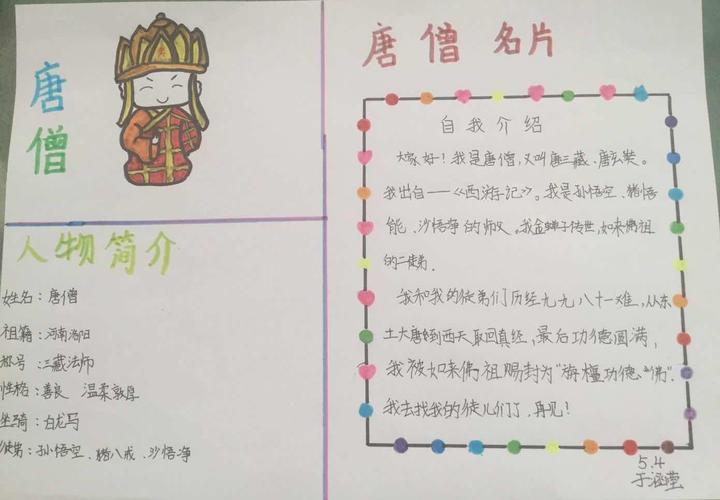 唐僧
人物简介
姓名：唐僧
祖籍：河南洛阳
称号：三藏法师
性格：善良 温柔敦厚
坐骑：白龙马
徒弟：孙悟空、猪八戒、沙悟净
唐僧 名片
自我介绍
大家好！我是唐僧，又叫唐三藏、唐玄奘。
我出自——《西游记》。我是孙悟空、猪悟
能、沙悟净的师父。我金蝉子传世，如来佛祖
的二徒弟。
我和我的徒弟们历经九九八十一难，从东
土大唐到西天取回真经，最后功德圆满，
我被如来佛祖赐封为“旃檀功德佛”。
我去找我的徒儿们了，再见！
5.4
于涵